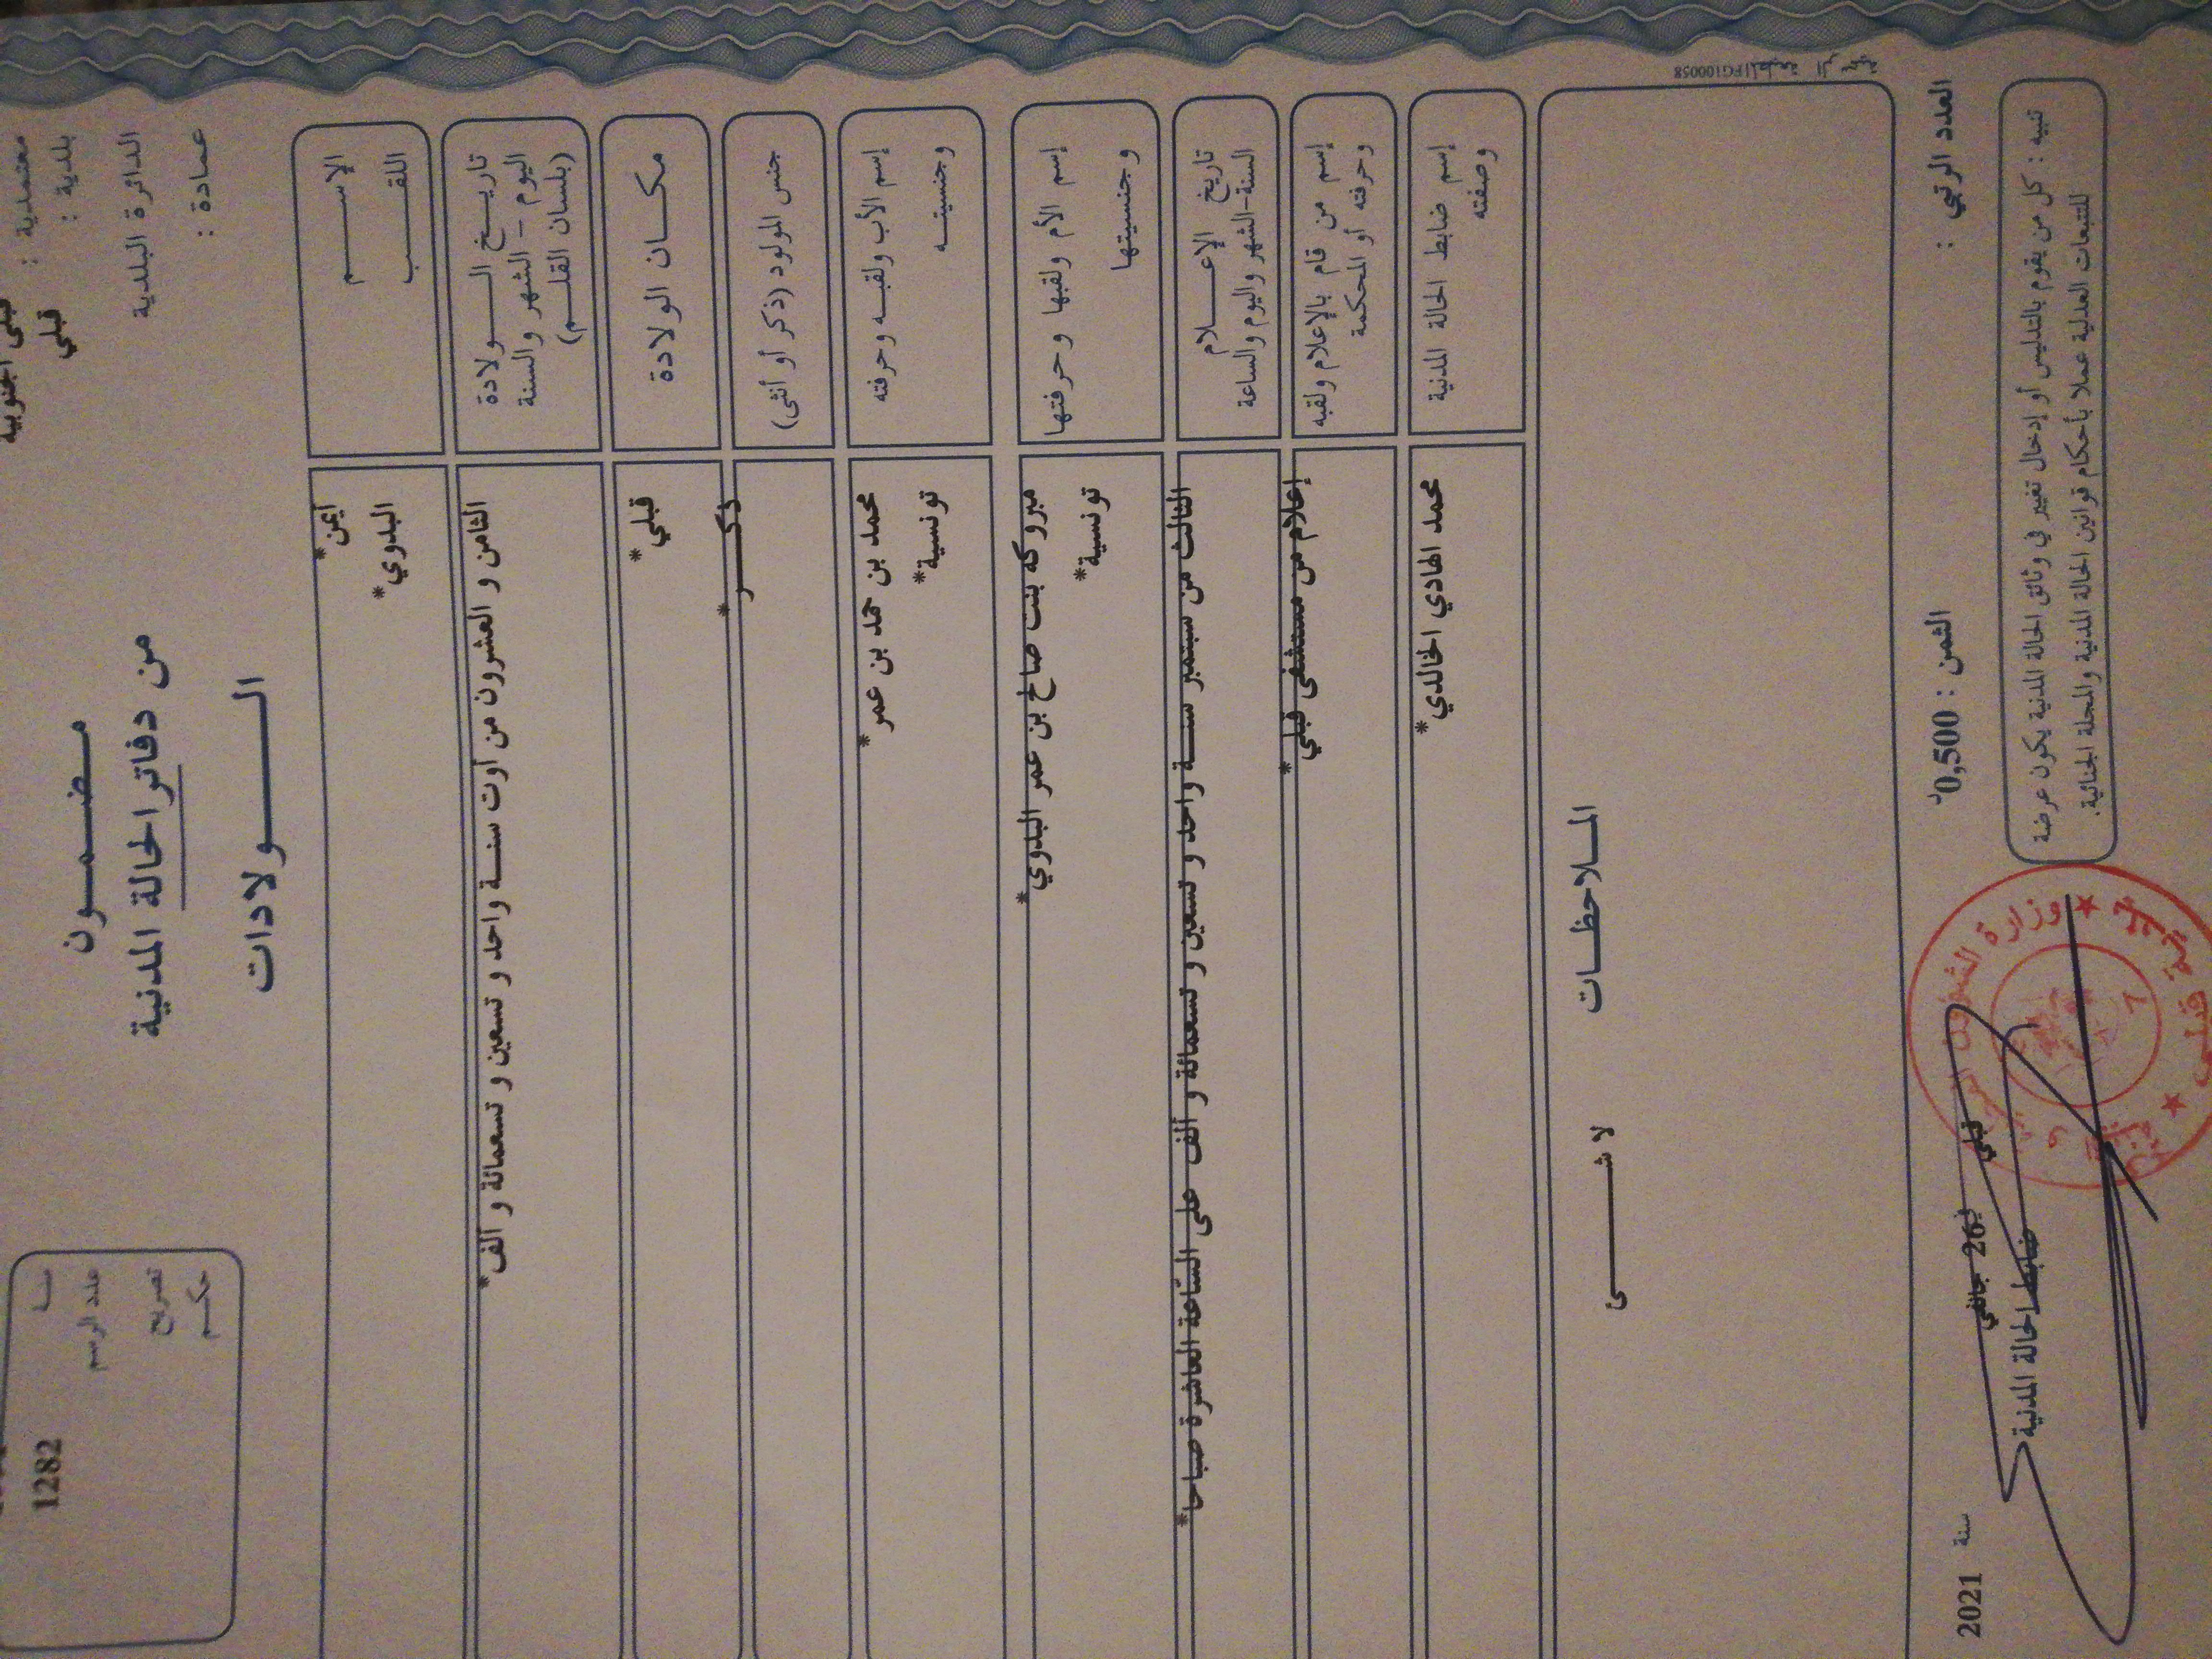 معتمدية : قبلي الجنوبية
بلدية : قبلي
الدائرة البلدية
عمادة :
مضمون
من دفاتر الحالة المدنية
الولادات
سنة
عدد الرسم 1282
تصريح
حكم
الإسم أيمن*
اللقب البدوي*
تاريخ الولادة
اليوم - الشهر والسنة
(بلسان القلم)
الثامن و العشرون من أوت سنة واحد و تسعين و تسعمائة و ألف*
مكان الولادة قبلي*
جنس المولود (ذكر أو أنثى) ذكر*
إسم الأب ولقبه وحرفته محمد بن حمد بن عمر*
وجنسيته تونسية*
إسم الأم ولقبها وحرفتها مبروكه بنت صالح بن عمر البدوي*
وجنسيتها تونسية*
تاريخ الإعلام
السنة-الشهر واليوم والساعة
الثالث من سبتمبر سنة واحد و تسعين و تسعمائة و ألف على الساعة العاشرة صباحا*
إسم من قام بالإعلام ولقبه
وحرفته أو المحكمة
إعلام من مستشفى قبلي*
إسم ضابط الحالة المدنية محمد الهادي الخالدي*
وصفته
الملاحظات
لا شئ
العدد الرتبي :
الثمن : 0,500د
قبلي في 26 جانفي سنة 2021
ضابط الحالة المدنية
تنبيه : كل من يقوم بالتدليس أو إدخال تغيير في وثائق الحالة المدنية يكون عرضة
للتتبعات العدلية عملا بأحكام قوانين الحالة المدنية والمجلة الجنائية.